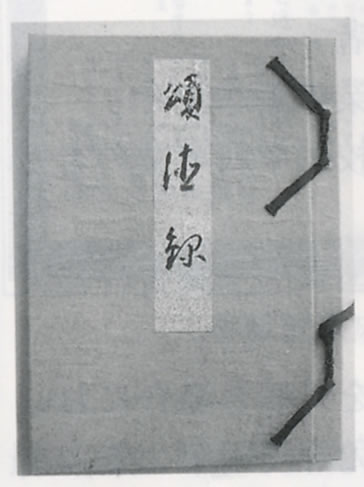 頌徳録